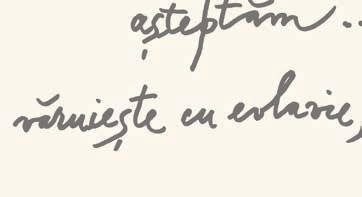 așteptăm..
văruiește cu evlavie,